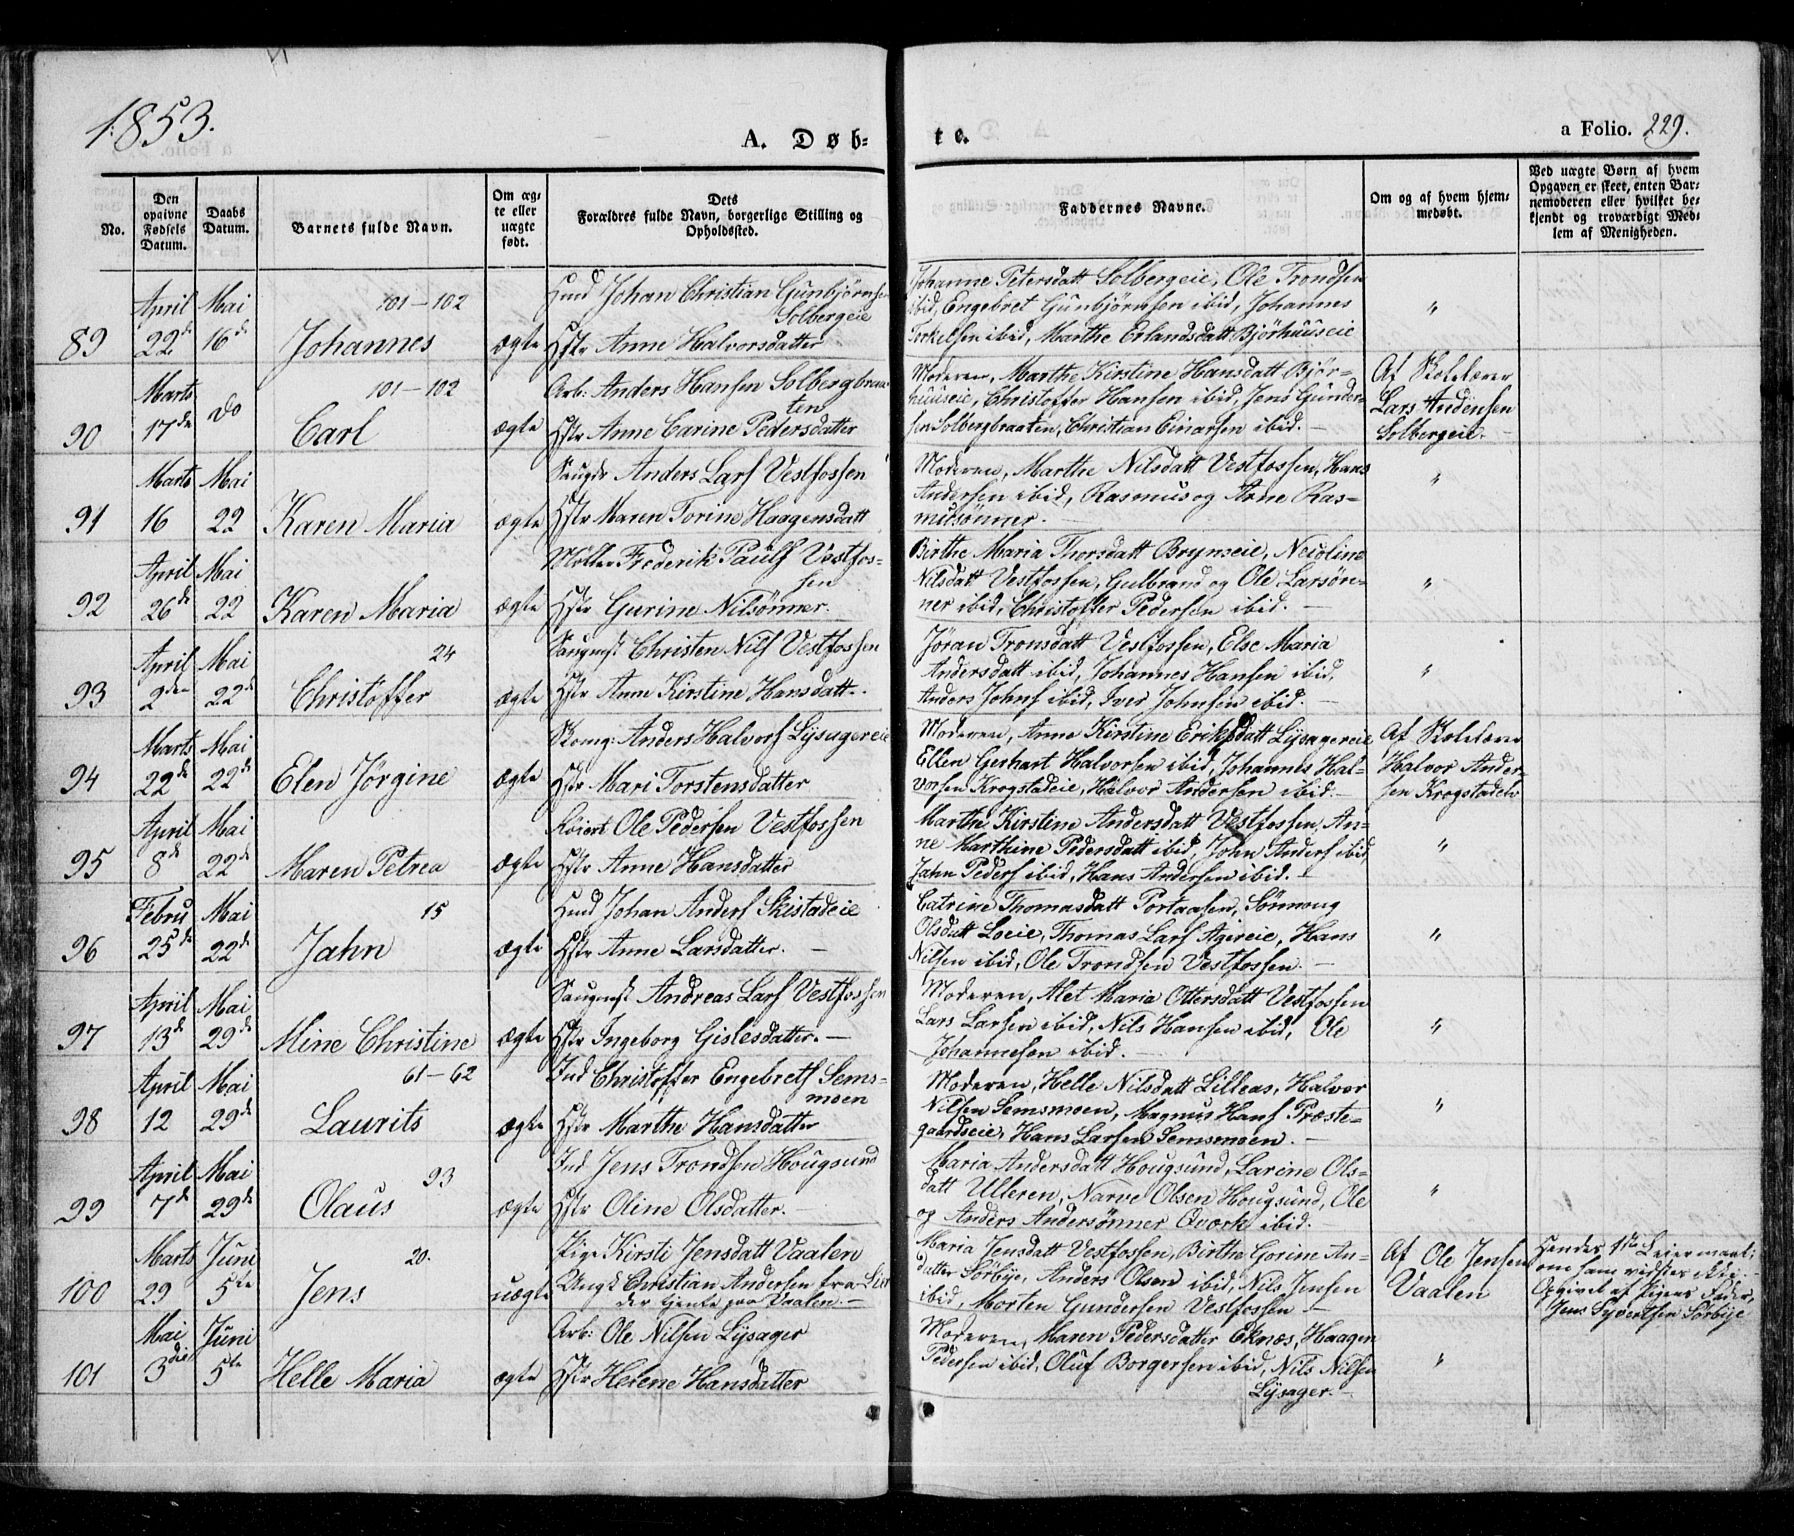 1853.
A. Døb-
te.
a Folio. 229.
No.
Den
opgivne
Fødsels
Datum.
Daabs
Datum.
Barnets fulde Navn.
Om æg-
te eller
uægte
født.
Dets
Forældres fulde Navn, borgerlige Stilling og
Opholdssted.
Faddernes Navne.
Om og af hvem hjem-
medøbt.
Ved uægte Børn af hvem
Opgaven er skeet, enten Bar-
nemoderen eller hvilket be-
kjendt og troværdigt Med-
lem af Menigheden.
89
April
22de
Mai
16de
101-102
Johannes
ægte
Huusmd Johan Christian Gunbjørnsen
Solbergeie
Hstr Anne Halvorsdatter
Johanne Petersdatt Solbergeie, Ole Trondsen
ibid, Engebret Gunbjørnsen ibid, Johannes
Torkelsen ibid, Marthe Erlandsdatt Bjørhuuseie
"
90
Marts
17de
do
101-102
Carl
ægte
Arb: Anders Hansen Solbergbraa-
ten
Hstr Anne Carine Pedersdatter
Moderen, Marthe Kirstine Hansdatt Bjør-
huuseie, Christoffer Hansen ibid, Jens Gunder-
sen Solbergbraaten, Christian Einarsen ibid. -
Af Skolelærer
Lars Andersen
Solbergeie.
91
Marts
16
Mai
22
Karen Maria
ægte
Anders Lars Vestfossen
Hstr Maren Torine Haagensdatt
Moderen, Marthe Nilsdatt Vestfossen, Hans
Andersen ibid, Rasmus og Arne Ras-
musønner. -
"
92
April
26de
Mai
22
Karen Maria
ægte
Møller Frederik Pauls Vestfos-
sen
Hstr Gurine Nilsønner.
Birthe Maria Thorsdatt Brynseie, Nicoline
Nilsdatt Vestfossen, Gulbrand og Ole Larsøn-
ner ibid, Christoffer Pedersen ibid. -
"
93
April
2den
Mai
22de
24
Christoffer
ægte
Saugmst Christen Nils Vestfossen
Hstr Anne Kirstine Hansdatt.
Jøran Tronsdatt Vestfossen, Else Maria
Andersdatt ibid, Johannes Hansen ibid,
Anders Johns ibid, Iver Johnsen ibid.
"
94
Marts
22de
Mai
22de
Elen Jørgine
ægte
Skomg: Anders Halvors Lysagereie
Hstr Mari Torstensdatter
Moderen, Anne Kirstine Eriksdatt Lysagereie
Ellen Gerhart Halvorsen ibid, Johannes Hal-
vorsen Krogstadeie, Halvor Andersen ibid. -
Af Skolelærer
Halvor Ander-
sen Krogstadeie
95
April
8de
Mai
22de
Maren Petrea
ægte
Ole Pedersen Vestfossen
Hstr Anne Hansdatter
Marthe Kirstine Andersdatt Vestfossen, An-
ne Marthine Pedersdatt ibid, John Anders ibid
Jahn Peders ibid, Hans Andersen ibid. -
"
96
Febru
25de
Mai
22de
15
Jahn
ægte
Huusmd Johan Anders Skistadeie
Hstr Anne Larsdatter. -
Catrine Thomasdatt Portaasen, Sønnoug
Olsdatt Loeie, Thomas Lars Agereie, Hans
Nilsen ibid, Ole Trondsen Vestfossen. -
"
97
April
13de
Mai
29de
Mine Christine
ægte
Saugmst Andreas Lars Vestfossen
Hstr Ingeborg Gislesdatter. -
Moderen, Alet Maria Ottersdatt Vestfossen
Lars Larsen ibid, Nils Hansen ibid, Ole
Johannesen ibid. -
"
98
April
12
Mai
29de
61-62
Laurits
ægte
Ind Christoffer Engebrets Sems-
moen
Hstr Marthe Hansdatter
Moderen, Helle Nilsdatt Lilleaas, Halvor
Nilsen Semsmoen, Magnus Hans Præste-
gaardseie, Hans Larsen Semsmoen. -
"
99
April
7de
Mai
29de
93
Olaus
ægte
Ind Jens Trondsen Hougsund
Hstr Oline Olsdatter. -
Maria Andersdatt Hougsund, Larine Ols-
datt Ulleren, Narve Olsen Hougsund, Ole
og Anders Andersønner Qværk ibid.
"
100
Marts
29
Juni
5te
20.
Jens
uægte
Pige Kirsti Jensdatt Vaalen
Ungk Christian Andersen fra Lier
der tjente paa Vaalen. -
Maria Jensdatt Vestfossen, Birthe Gorine An-
datter Sørbye, Anders Olsen ibid, Nils Jensen
ibid, Morten Gundersen Vestfossen -
Af Ole Jensen
Vaalen
Hendes 1ste Leiermaal;
om ham vidstes ikke.
Opgivet af Pigens Fader,
Jens Syvertsen Sørbye
101
Mai
3die
Juni
5te
Helle Maria
ægte
Arb: Ole Nilsen Lysager
Hstr Helene Hansdatter
Moderen, Maren Pedersdatter Eknæs, Haagen
Pedersen ibid, Oluf Borgersen ibid, Nils Nilsen
Lysager. -
"